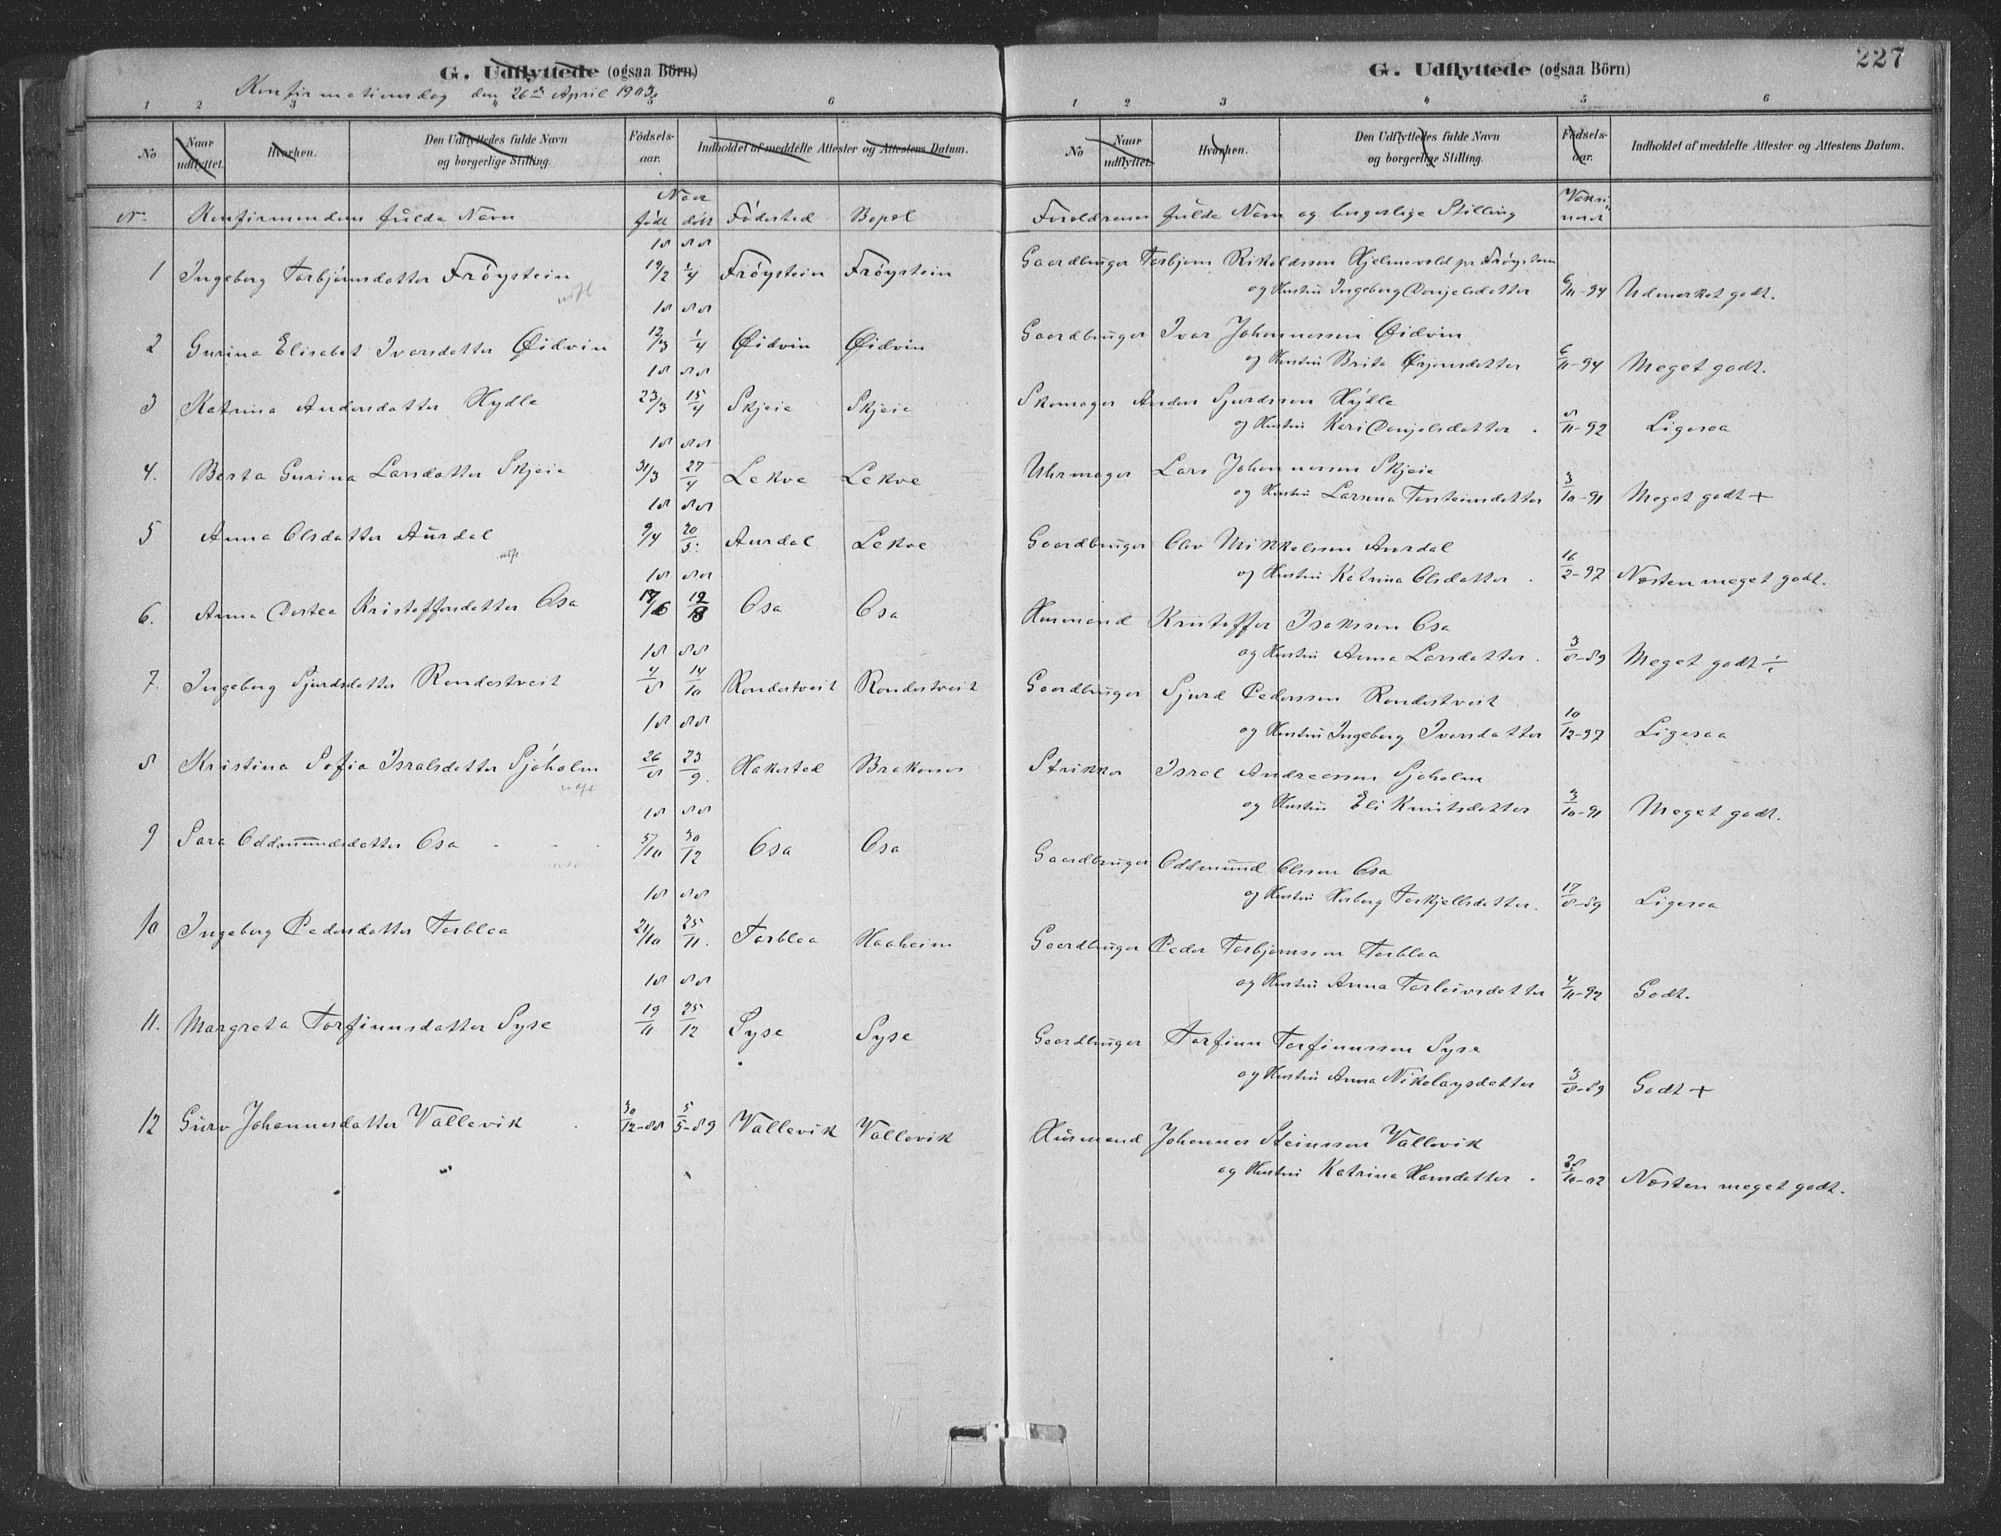 227
G. Udflyttede (ogsaa Börn)
Konfirmationsdag den 26de April 1903
1 2 3 4 6
No Naar udflyttet. Hvorhen. Den Udflyttedes fulde Navn og borgerlige Stilling. Födsels-aar. Indholdet af meddelte Attester og Attestens Datum.
Nr. Konfirmandens fulde Navn Naar født døbt Fødested Bopæl
18 88
1 Ingeborg Torbjørnsdatter Frøystein 19/2 1/4 Frøystein Frøystein
18 88
2 Gurina Elisabet Ivarsdatter Øidvin 12/3 1/4 Øidvin Øidvin
18 88
3 Katrina Andersdatter Hydle 23/3 15/4 Skjeie Skjeie
18 88
4. Berta Gurina Larsdatter Skjeie 31/3 27/4 Lekve Lekve
18 88
5 Anna Olsdatter Aurdal 9/4 20/5. Aurdal Lekve
18 88
6. Anna Dortea Kristoffersdatter Osa 17/6 19/8 Osa Osa
18 88
7. Ingeborg Sjurdsdatter Rondestveit 4/8 14/10 Rondestveit Rondestveit
18 88
8 Kristina Sofia Israelsdatter Sjøholm 26/8 23/9. Hakestad Brakenes
18 88
9 Sara Oddmundsdatter Osa 5/10 30/12 Osa Osa
18 88
10 Ingeborg Pedersdatter Torblaa 21/10 25/11. Torblaa Haaheim
18 88
11. Margreta Torfinnsdatter Syse 19/11 25/12 Syse Syse
12 Gurv Johannesdatter Vallevik 30/12-88 5/5-89 Vallevik Vallevik
G. Udflyttede (ogsaa Börn)
1 2 3 4 5 6
No Naar udflyttet. Hvorhen. Den Udflyttedes fulde Navn og borgerlige Stilling. Födsels-aar. Indholdet af meddelte Attester og Attestens Datum.
Foreldrenes fulde Navn og borgerlige Stilling
Gaardbruger Torbjørn Rikoldssen Hjelmevold pr Frøystein
og Hustru Ingeborg Danjelsdatter 6/11-94 Udmerket godt.
Gaardbruger Ivar Johannessen Øidvin
og Hustru Brita Ørjansdatter 6/11-94 Meget godt.
Skomager Anders Sjurdssen Hydle
og Hustru Kari Danjelsdatter. 8/11-92 Ligesaa
Uhrmager Lars Johannessen Skjeie
og Hustru Larsina Torsteinsdatter 3/10-91 Meget godt +
Gaardbruger Olav Mikkelssen Aurdal
og Hustru Katrina Olsdatter. 16/2-97 Næsten meget godt.
Husmand Kristoffer Isakssen Osa
og Hustru Anna Larsdatter. 3/8-89 Meget godt ÷
Gaardbruger Sjurd Pederssen Rondestveit
og Hustru Ingeborg Ivarsdatter 10/12-97 Ligesaa
Strikker Israel Andreassen Sjøholm
og Hustru Eli Knutsdatter 3/10-91 Meget godt.
Gaardbruger Oddmund Olssen Osa
og Hustru Herborg Torkjellsdatter. 17/8-89 Ligesaa
Gaardbruger Peder Torbjørnssen Torblaa
og Hustru Anna Torleivsdatter 4/11-92 Godt.
Gaardbruger Torfinn Torfinnssen Syse
og Hustru Anna Nikolaysdatter 3/8-89 Godt +
Husmand Johannes Steinssen Vallevik
og Hustru Katrina Hansdatter. 28/10-02 Næsten meget godt.